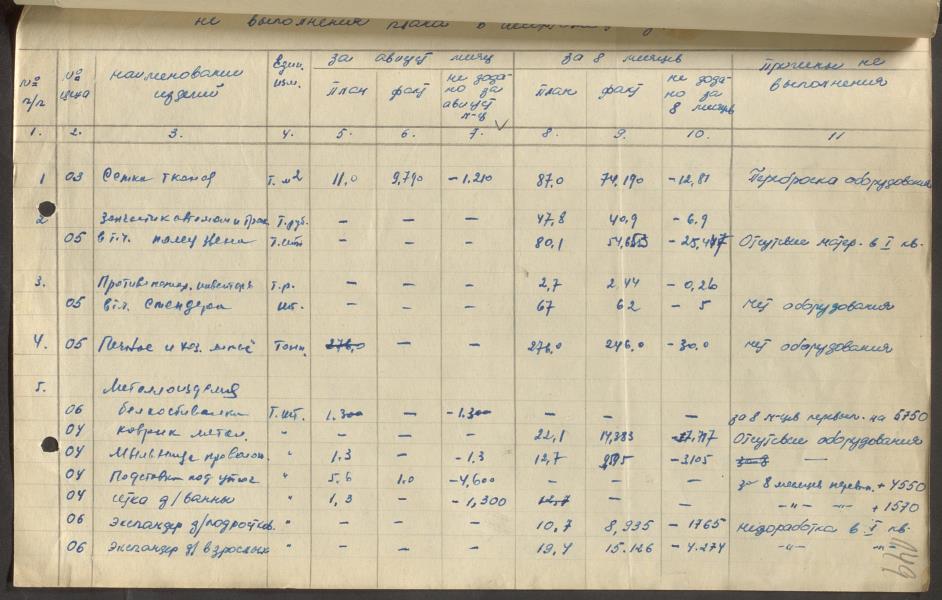 не выполнения плана в
№№ п/п № цеха наименование изделий Един. изм. за август месяц за 8 месяцев Причины не выполнения
план факт не дода-но за август м-ц план факт не дода-но за 8 месяцев
1. 2. 3. 4. 5. 6. 7. 8. 9. 10. 11
1 03 Сетка тканая т. м2 11,0 9,790 -1.210 87,0 74,190 -12,81 Переброска оборудования
2 Запчасти к автомаш и трак. т.руб. - - - 47,8 40,9 -6.9
05 в т.ч. палец т.шт - - - 80,1 Отсутствие матер. в I кв.
3. Противопожар. инвентарь т.р. - - - 2,7 2,44 -0,26
05 в т.ч. Стендера шт. - - - 67 62 -5 нет оборудования
4. 05 Печное и хоз. литьё Тонн. 276,0 - - 276,0 246,0 -30.0 нет оборудования
5. Металлоизделия
06 т.шт. 1.300 - -1.300 - - - за 8 м-цев перевып. на 5750
04 коврик метал. " - - - 22,1 14,383 Отсутствие оборудования
04 Мыльница проволоч. " 1.3 - -1.3 12,7 -3105 -
04 Подставка под утюг " 5.6 1.0 -4,600 - - - за 8 месяцев перевып. +4550
04 сетка д/ванны " 1,3 - -1,300 12,7 - - -"- -"- +1570
06 экспандер д/подростков. " - - - 10,7 8,935 -1765 недоработка в I кв.
06 экспандер д/взрослых " - - - 19,4 15.126 -4.274 -"- "
149